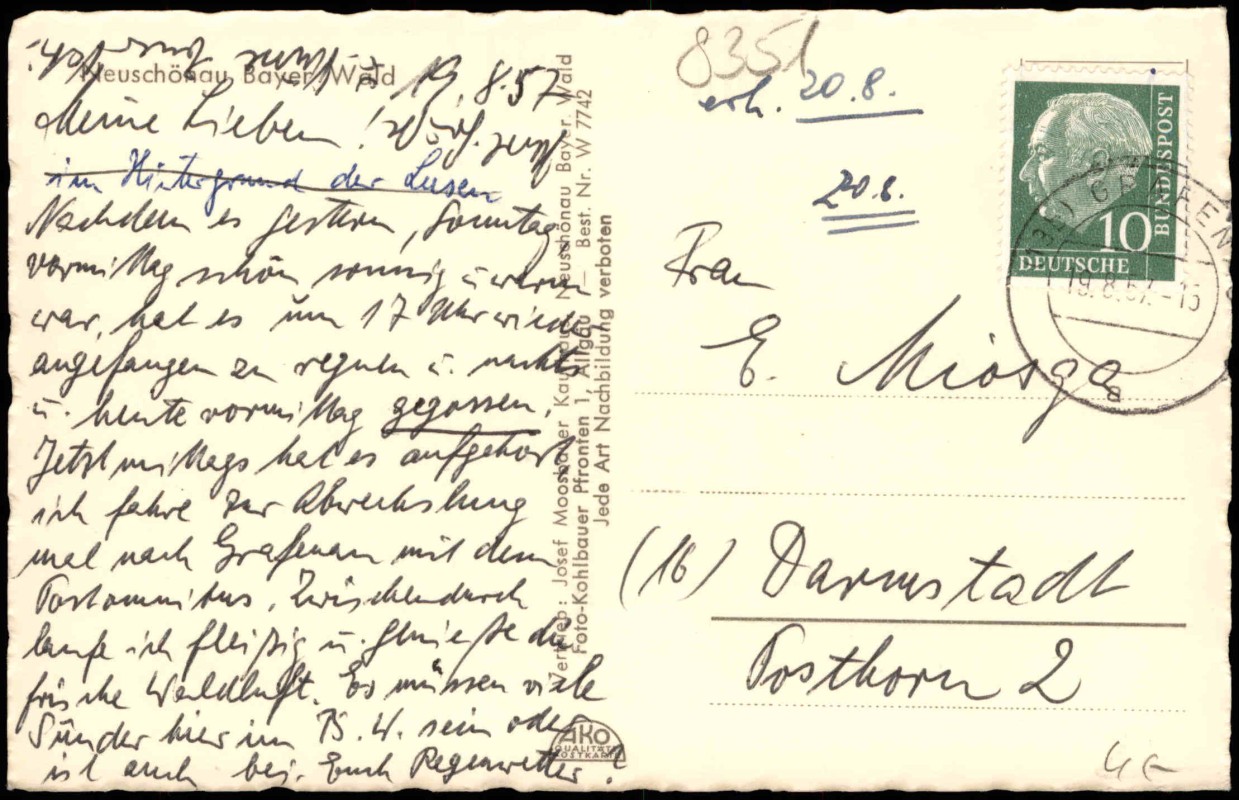 Neuschönau, Bayer. Wald
19.8.57
Meine Lieben!
im Hintergrund der Lusen
Nachdem es gestern, Sonntag
vormittag schön sonnig u. warm
war, hat es um 17 Uhr wieder
angefangen zu regnen u. nachts
u. heute vormittag gegossen.
Jetzt mittags hat es aufgehört
ich fahre zur Abwechslung
mal nach Grafenau mit dem
Postomnibus. Zwischendurch
laufe ich fleißig u. genieße die
frische Waldluft. Es müssen viele
Sünder hier im B. W. sein oder
ist auch bei Euch Regenwetter?
Vertrieb: Josef Moosbauer Kaufhaus Neuschönau Bayer. Wald
Foto-Kohlbauer Pfronten 1, Allgäu — Best. Nr. W 7742
Jede Art Nachbildung verboten
AKO
QUALITÄTS
POSTKARTE
8351
erh. 20.8.
20.8.
10
DEUTSCHE
BUNDESPOST
19.8.57.-15
a
Frau
E. Miosga
(16) Darmstadt
Posthorn 2